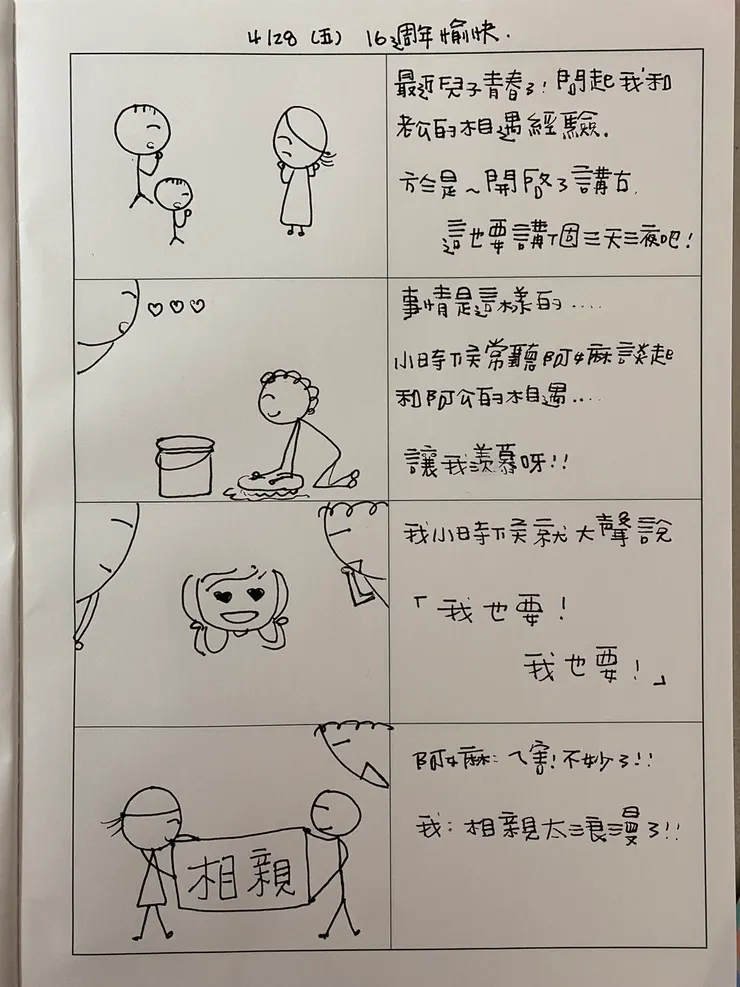 4/28 (五) 16週年愉快.
最近兒子青春了! 問起我和
老公的相遇經驗.
於是~開啓了講古.
這也要講個三天三夜吧!
事情是這樣的....
小時候常聽阿嬤談起
和阿公的相遇....
讓我羨慕呀!!
我小時候就大聲說
「我也要!
我也要!」
阿嬤: ㄟ害! 不妙了!!
我: 相親太浪漫了!!
相親